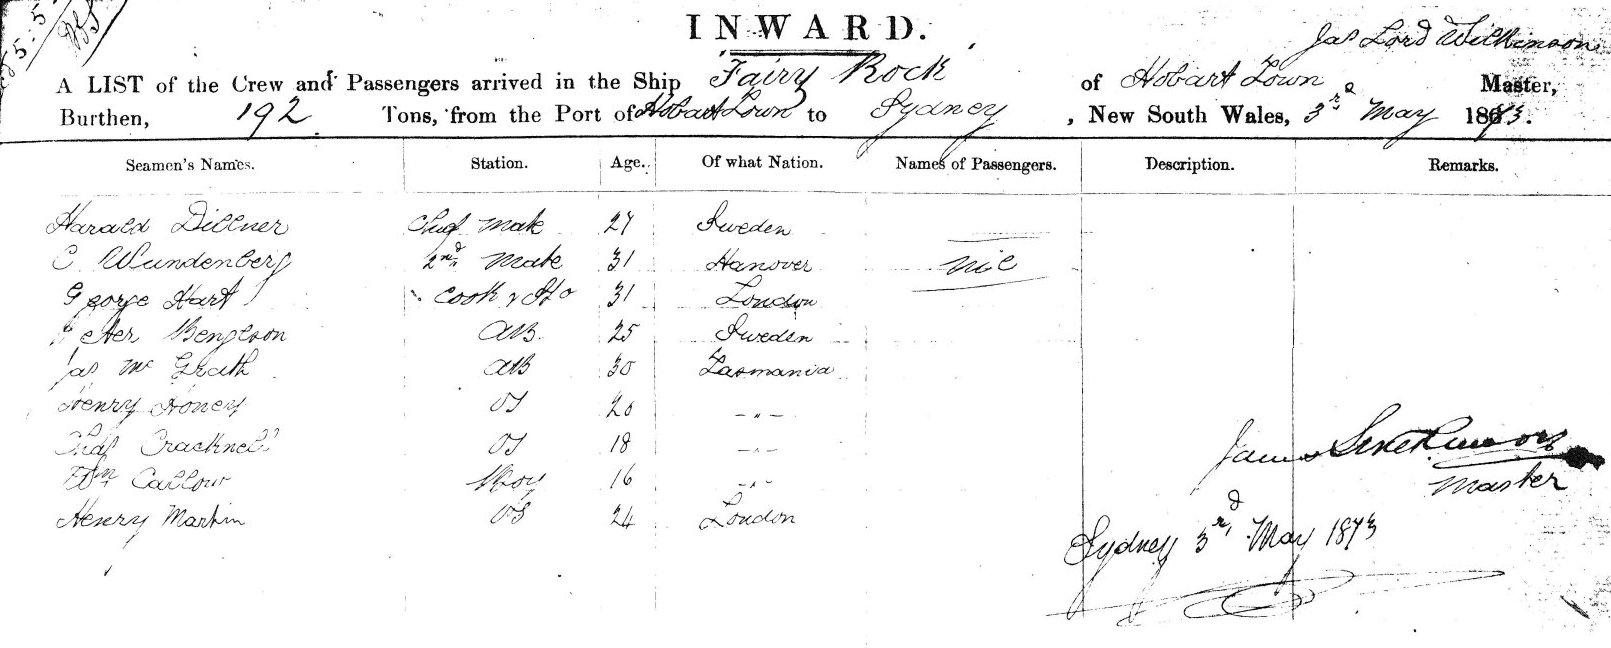 INWARD.
Jas Lord Wilkinson
A LIST of the Crew and Passengers arrived in the Ship Fairy Rock of Hobart Town Master,
Burthen, 192 Tons, from the Port of Hobart Town to Sydney, New South Wales, 3rd May 1873.
Seamen's Names. Station. Age. Of what Nation. Names of Passengers. Description. Remarks.
Harald Dillner Chief Mate 27 Sweden
C Wundenberg 2nd Mate 31 Hanover nil
George Hart Cook & Std 31 London
Peter Bengtson AB 25 Sweden
Jas Mc Grath AB 30 Tasmania
Henry Honey OS 20 - " -
Chas Cracknell OS 18 - " -
Wm Callow Boy 16 - " -
Henry Martin OS 24 London
James
Master
Sydney 3rd May 1873